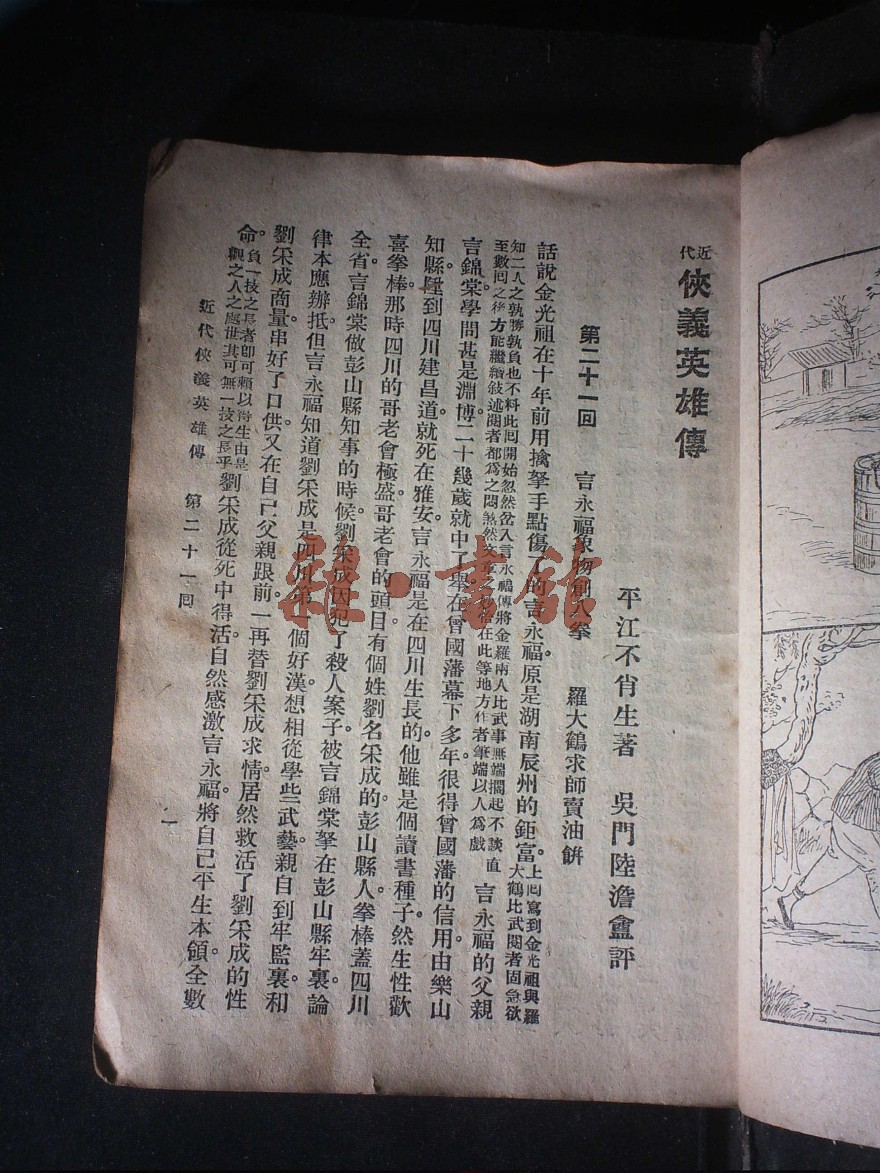 近代俠義英雄傳
平江不肖生著　吳門陸澹盦評
第二十一回　言永福象物創八拳　羅大鶴求師賣油餅
話說金光祖在十年前用擒拏手點傷了的言永福原是湖南辰州的鉅富。上回寫到金光祖與羅大鶴比武閱者固急欲
知二人之孰勝孰負也不料此回開始忽然岔入言永福傳將金羅兩人比武事無端擱起不談直至數回之後方能繼續敍述閱者都爲之悶煞然文章之妙卻在此等地方作者筆端以人爲戲言永福的父親
言錦棠學問甚是淵博二十幾歲就中了舉在曾國藩幕下多年很得曾國藩的信用由樂山
知縣陞到四川建昌道就死在雅安。言永福是在四川生長的。他雖是個讀書種子然生性歡
喜拳棒那時四川的哥老會極盛哥老會的頭目有個姓劉名采成的彭山縣人拳棒蓋四川
全省言錦棠做彭山縣知事的時候劉采成因犯了殺人案子被言錦棠拏在彭山縣牢裏論
律本應辦抵但言永福知道劉采成是四川第一個好漢想相從學些武藝親自到牢監裏。和
劉采成商量串好了口供又在自己父親跟前一再替劉采成求情居然救活了劉采成的性
命。負一技之長者卽可賴以得生由是觀之人之處世其可無一技之長乎劉采成從死中得活。自然感激言永福。將自己平生本領。全數
近代俠義英雄傳　第二十一回　一
雜·書館